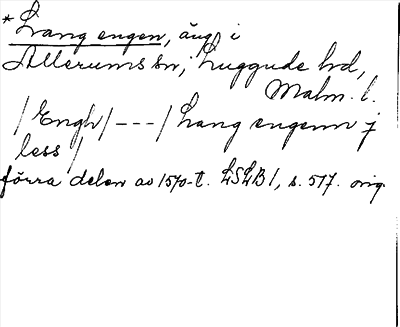 * Lang engen, äng i
Allerums sn, Luggude hd,
Malm. l.
/Engh/---/Lang engenn j
less/
förra delen av 1570-t. LSLB1, s. 517. orig.